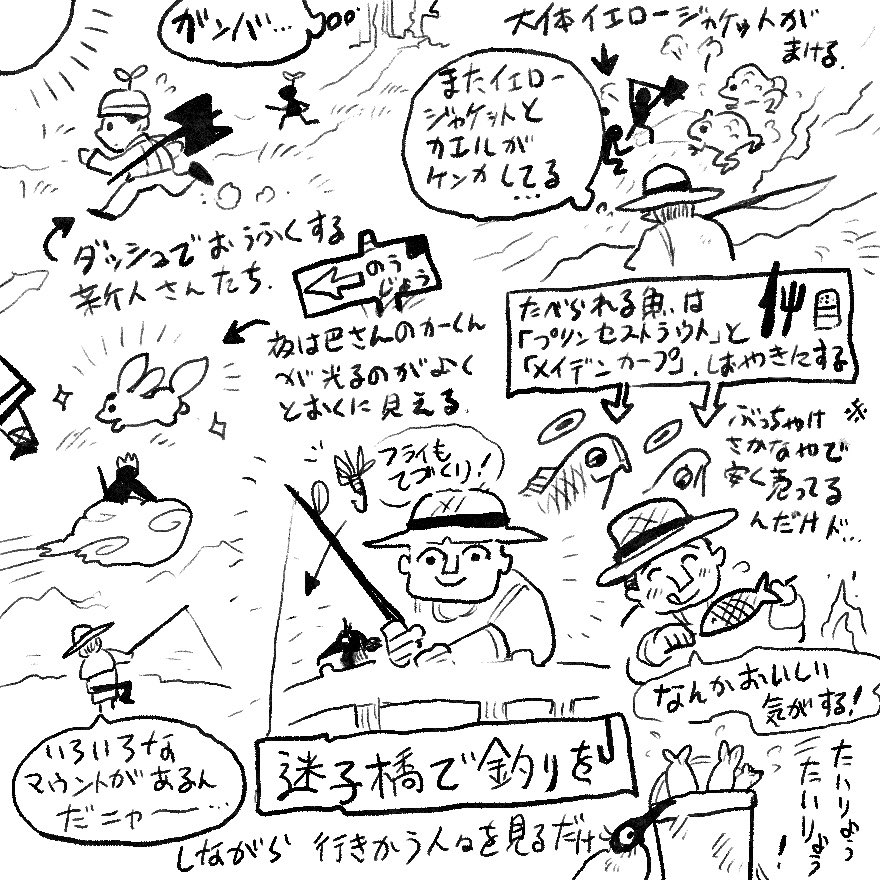 ガンバ…
大体イエロージャケットが
まける.
またイエロー
ジャケットと
カエルが
ケンカしてる
…
ダッシュでおうふくする
新人さんたち.
のう
じょう
夜は巴さんのカーくん
が光るのがよく
とおくに見える.
たべられる魚は
「プリンセストラウト」と
「メイデンカープ」.しおやきにする
ぶっちゃけ ※
さかなやで
安く売ってる
んだけド…
フライも
てづくり!
なんかおいしい
気がする!
いろいろな
マウントがあるん
だニャー…
迷子橋で釣りを
しながら 行きかう人々を見るだけ
たいりょう
たいりょう
!